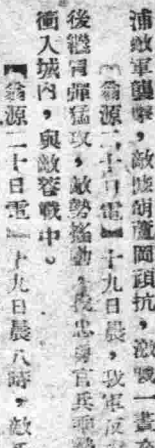 浦敵軍襲擊，敵據葫蘆岡頑抗，激戰一晝
【翁源二十日電】十九日晨，我軍反
後繼冒彈猛攻，敵勢搖動，我忠勇官兵
衝入城內，與敵巷戰中。
【翁源二十日電】十九日晨八時，敵